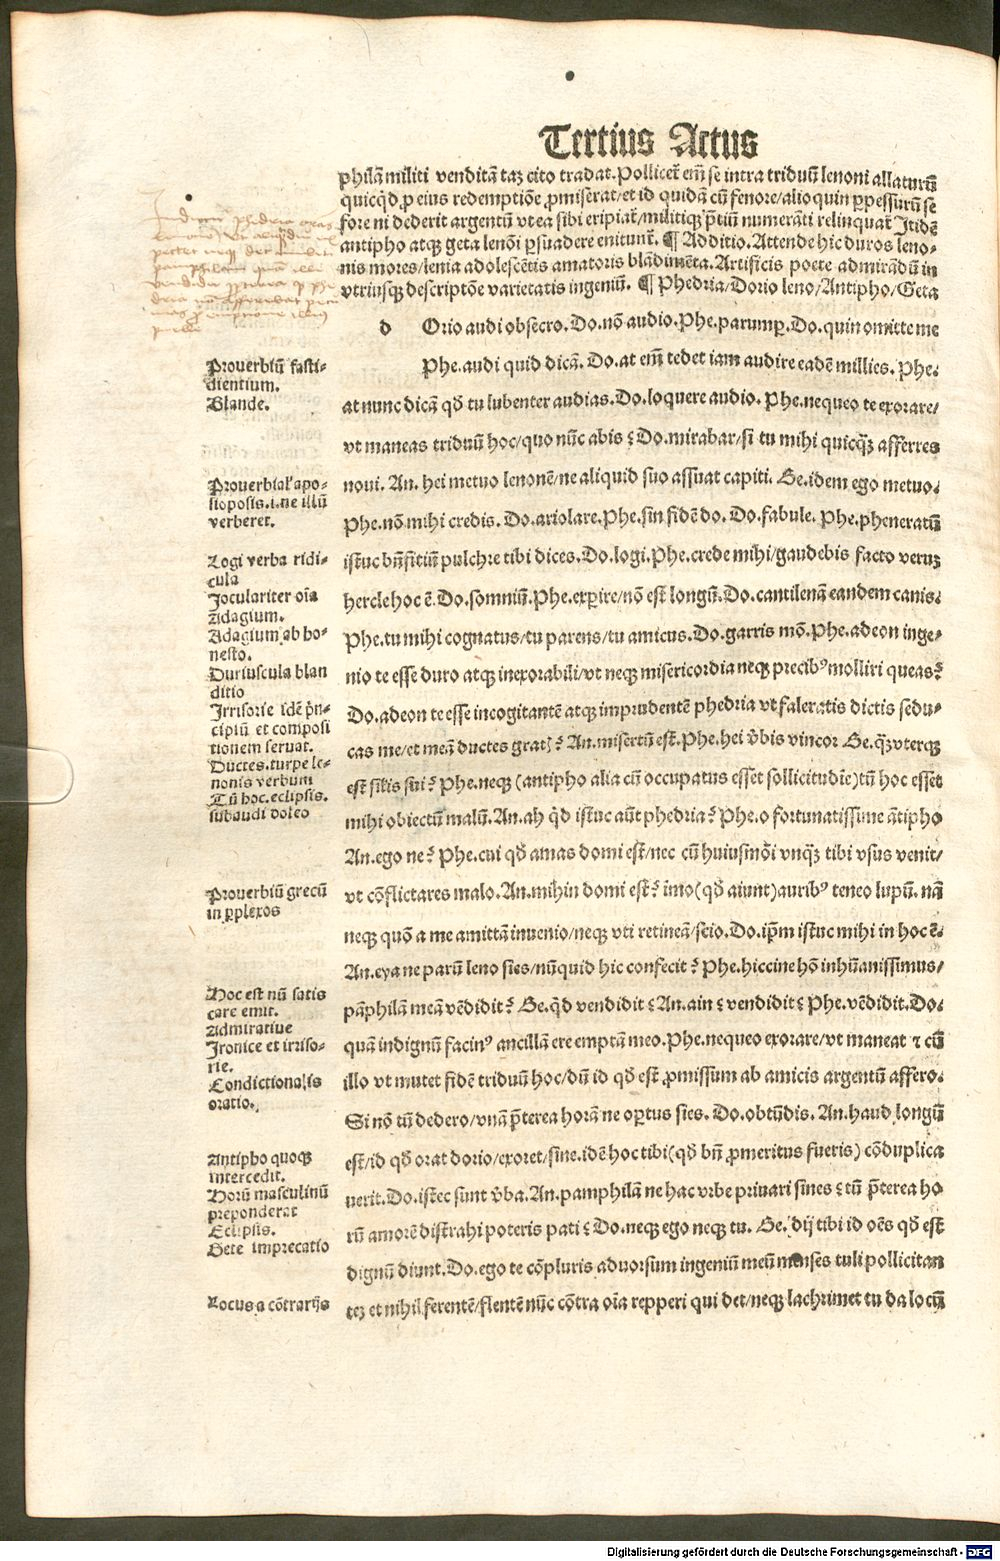 Tertius Actus
philā militi venditā taꝫ cito tradat. Pollicet᷑ em̄ se intra triduū lenoni allaturū
quicq̇d ꝓ eius redemptiōe ꝓmiserat/et id quidā cū fenore/alioquin ꝑpessurū se
fore ni dederit argentū vt ea sibi eripiat᷑/militiqꝫ p̄tiū numerāti relinquat᷑ Itidē
antipho atqꝫ geta lenōi ꝑsuadere enitunt᷑. ¶ Additio. Attende hic duros leno-
nis mores/lenia adolescētis amatoris blādimēta. Artificis poete admirādū in
vtriusqꝫ descriptōe varietatis ingeniū. ¶ Phedria/Dorio leno/Antipho/Geta
d Orio audi obsecro. Do. nō audio. Phe. parumꝑ. Do. quin omitte me
Phe. audi quid dicā. Do. at em̄ tedet iam audire eadē millies. Phe.
at nunc dicā qđ tu lubenter audias. Do. loquere audio. Phe. nequeo te exorare/
vt maneas triduū hoc/quo nūc abis ? Do. mirabar/si tu mihi quicqꝫ̄ afferres
noui. An. hei metuo lenonē/ne aliquid suo assuat capiti. Ge. idem ego metuo.
Phe. nō mihi credis. Do. ariolare. Phe. sin fidē do. Do. fabule. Phe. pheneratū
istuc bn̄ficiū pulchre tibi dices. Do. logi. Phe. crede mihi/gaudebis facto veruꝫ
hercle hoc ē. Do. somniū. Phe. experire/nō est longū. Do. cantilenā eandem canis.
Phe. tu mihi cognatus/tu parens/tu amicus. Do. garris mō. Phe. adeon inge-
nio te esse duro atqꝫ inexorabili/vt neqꝫ misericordia neqꝫ precibꝰ molliri queas?
Do. adeon te esse incogitantē atqꝫ imprudentē phedria vt faleratis dictis sedu-
cas me/et meā ductes gratis? An. misertū est. Phe. hei v̄bis vincor Ge. qꝫ̄ vterqꝫ
est silis sui? Phe. neqꝫ (antipho alia cū occupatus esset sollicitudīe) tū hoc esset
mihi obiectū malū. An. ah q̇d istuc aūt phedria? Phe. o fortunatissime ātipho
An. ego ne? Phe. cui qđ amas domi est/nec cū huiusmōi vnqꝫ̄ tibi vsus venit/
vt cōflictares malo. An. mihin domi est? īmo (qđ aiunt) auribꝰ teneo lupū. nā
neqꝫ quō a me amittā inuenio/neqꝫ vti retineā/scio. Do. ip̄m istuc mihi in hoc ē.
An. eya ne parū leno sies/nūquid hic confecit? Phe. hiccine hō inhūanissimus/
pāphilā meā vēdidit? Ge. q̇d vendidit ? An. ain ? vendidit ? Phe. vēdidit. Do.
quā indignū facinꝰ ancillā ere emptā meo. Phe. nequeo exorare/vt maneat ⁊ cū
illo vt mutet fidē triduū hoc/dū id qđ est ꝓmissum ab amicis argentū affero.
Si nō tū dedero/vnā p̄terea horā ne oꝑtus sies. Do. obtūdis. An. haud longū
est/id qđ orat dorio/exoret/sine. idē hoc tibi (qđ bn̄ ꝓmeritus fueris) cōduplica
uerit. Do. istec sunt v̄ba. An. pamphilā ne hac vrbe priuari sines ? tū p̄terea ho
rū amorē distrahi poteris pati ? Do. neqꝫ ego neqꝫ tu. Ge. dij tibi id oēs qđ est
dignū diunt. Do. ego te cōpluris aduorsum ingeniū meū menses tuli pollicitan
teꝫ et nihil ferentē/flentē nūc cōtra oīa repperi qui det/neqꝫ lachrimet tu da locū
Prouerbiū fasti-
dientium.
Blande.
Prouerbial' apo-
sioposis. i. ne illū
verberet.
Logi verba ridi-
cula
Joculariter oīa
Adagium.
Adagium ab ho-
nesto.
Duriuscula blan
ditio
Irrisorie idē p̄n-
cipiū et composi
tionem seruat.
Ductes. turpe le-
nonis verbum
Tū hoc. eclipsis.
subaudi doleo
Prouerbiū grecū
in ꝑplexos
Hoc est nū satis
care emit.
Admiratiue
Ironice et irriso-
rie.
Condictionalis
oratio.
Antipho quoqꝫ
intercedit.
Horū masculinū
preponderat
Eclipsis.
Gete imprecatio
Locus a cōtrarijs
Digitalisierung gefördert durch die Deutsche Forschungsgemeinschaft - DFG